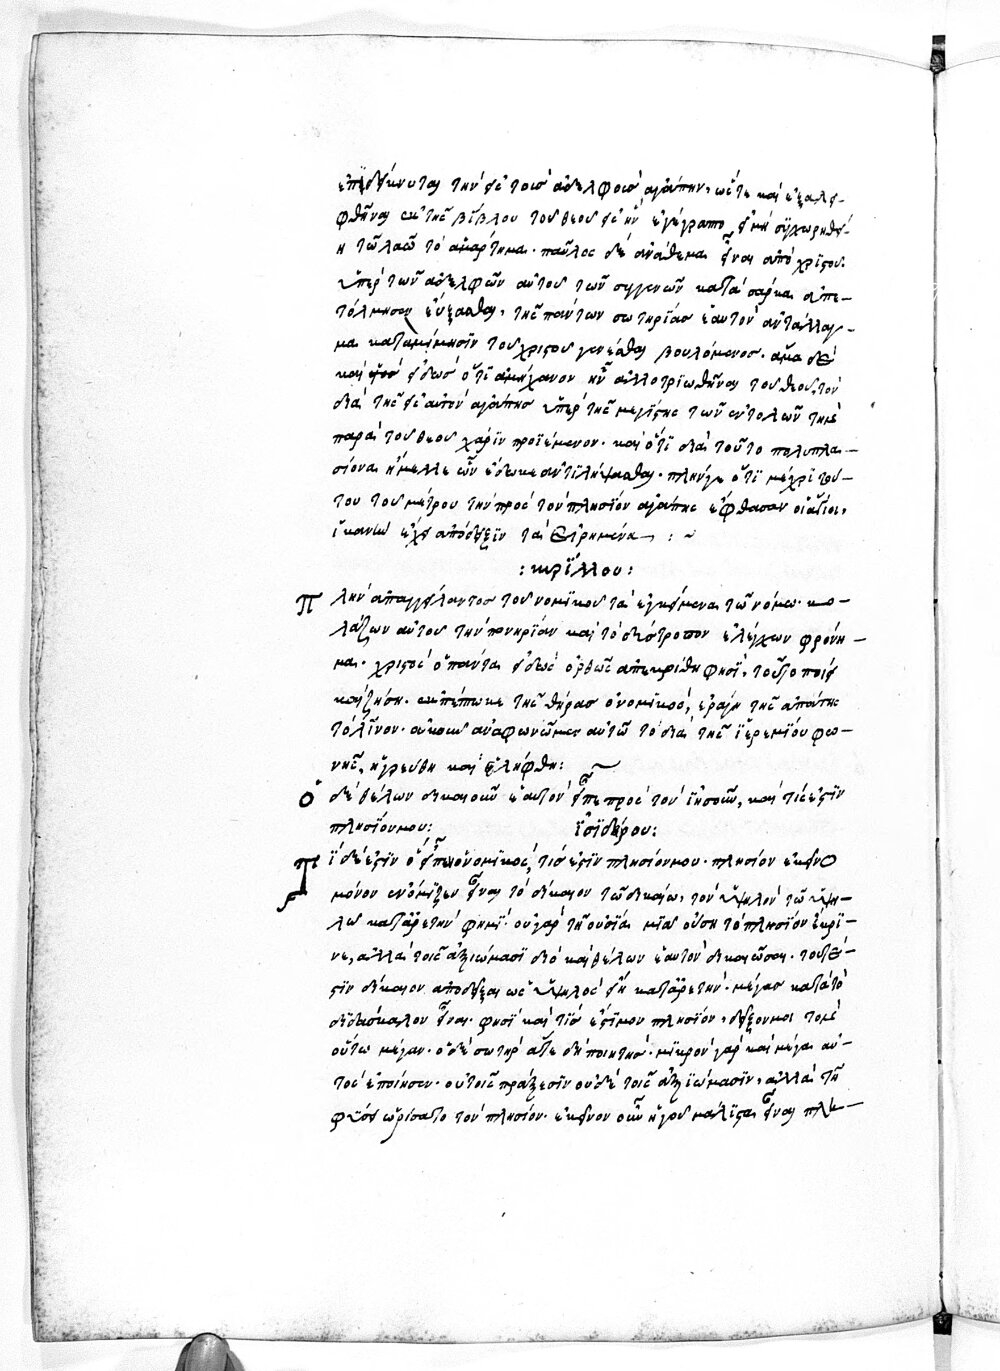 ἐπεδείκνυται τὴν εἰς τοὺς ἀδελφοὺς ἀγάπην, ὥστε καὶ ἐξαλει-
φθῆναι ἐκ τῆς βίβλου τοῦ θεοῦ εἰς ἣν ἐγέγραπτο, εἰ μὴ συγχωρηθεί-
η τῷ λαῷ τὸ ἁμάρτημα. παῦλος δὲ ἀνάθεμα εἶναι ἀπὸ χριστοῦ
ὑπὲρ τῶν ἀδελφῶν αὐτοῦ τῶν συγγενῶν κατὰ σάρκα ἀπε-
τόλμησεν εὔξασθαι, τῆς πάντων σωτηρίας ἑαυτὸν ἀντάλλαγ-
μα κατὰ μίμησιν τοῦ χριστοῦ γενέσθαι βουλόμενος. ἅμα δὲ
καὶ εἰδὼς ὅτι ἀμήχανον ἦν ἀλλοτριωθῆναι τοῦ θεοῦ, τὸν
διὰ τῆς εἰς αὐτὸν ἀγάπης ὑπὲρ τῆς μεγίστης τῶν ἐντολῶν τῆς
παρὰ τοῦ θεοῦ χάριν προϊέμενον. καὶ ὅτι διὰ τοῦτο πολυπλα-
σίονα ἤμελλε ὧν ἔδωκε ἀντιλήψεσθαι. πλήν γε ὅτι μέχρι τού-
του τοῦ μέτρου τῆς πρὸς τὸν πλησίον ἀγάπης ἔφθασαν οἱ ἅγιοι,
ἱκανὴν ἔχει ἀπόδειξιν τὰ εἰρημένα : ~
: κυρίλλου :
Πλὴν ἀπαγγείλαντος τοῦ νομικοῦ τὰ ἐγκείμενα τῷ νόμῳ. κο-
λάζων αὐτοῦ τὴν πονηρίαν καὶ τὸ διάστροφον ἐλέγχων φρόνη-
μα. χριστὸς ὁ πάντα εἰδὼς ὀρθῶς ἀπεκρίθη φησί, τοῦτο ποίει
καὶ ζήσῃ. ἐκπέπτωκε τῆς θήρας ὁ νομικός, ἐρράγη τῆς ἀπάτης
τὸ λίνον. ἀκουέτω ἀναφωνῶμεν αὐτῷ τὸ διὰ τῆς ἱερεμίου φω-
νῆς, ηὑρέθη καὶ ἐλήφθη : ~
Ὁ δὲ θέλων δικαιοῦν ἑαυτὸν εἶπε πρὸς τὸν ἰησοῦν, καὶ τίς ἐστίν
πλησίον μου : ἰσιδώρου :
Τί δέ ἐστιν ὃ εἶπεν ὁ νομικός, τίς ἐστίν πλησίον μου. πλησίον ἐκεῖνο
μόνον ἐνόμιζεν εἶναι τὸ δίκαιον τῷ δικαίῳ, τὸν ὑψηλὸν τῷ ὑψη-
λῷ κατ' ἀρετήν φημι. οὐ γὰρ τῇ οὐσίᾳ μιᾷ οὔσῃ τὸ πλησίον ἔκρι-
νε, ἀλλὰ τοῖς ἀξιώμασι διὸ καὶ θέλων ἑαυτὸν δικαιῶσαι. τουτέ-
στιν δίκαιον ἀποδεῖξαι ὡς ὑψηλὸς εἴη κατ' ἀρετήν. μέγας κατὰ τὸ
διδάσκαλον εἶναι. φησὶ καὶ τίς ἐστί μου πλησίον, δείξον μοι τὸν
οὕτω μέγαν. ὁ δὲ σωτὴρ ἅτε δὴ ποιητής. μικρὸν γὰρ καὶ μέγαν αὐ-
τὸς ἐποίησεν. οὐ τοῖς πράξεσιν οὐδὲ τοῖς ἀξιώμασιν, ἀλλὰ τῇ
φύσει ὡρίσατο τὸν πλησίον. ἐκεῖνον οὖν ἡγοῦ μάλιστα εἶναι πλη-